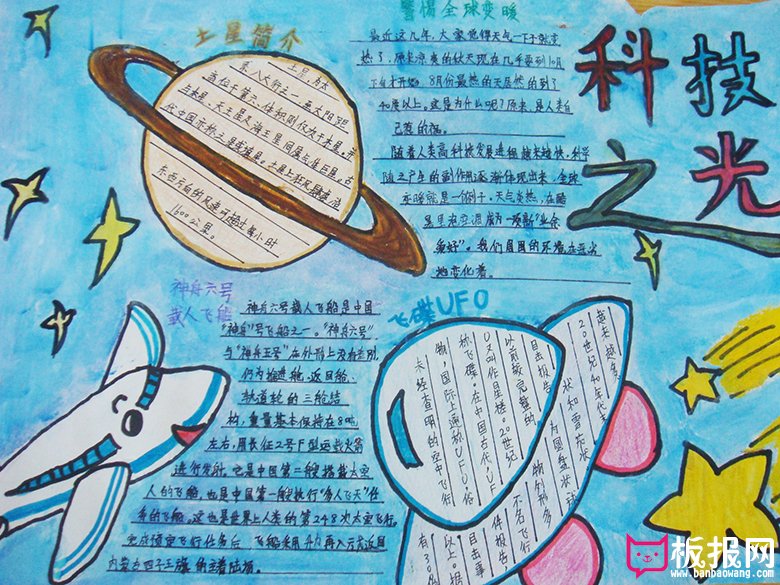 科技
之光
土星简介
土星，为太
系八大行之一，至太阳距
离位于第六、体积则仅次于木星。并
与木星、天王星及海王星同属气体巨星。古
代中国亦称之星或填星。土星上狂风肆虐，沿
东西方向的风速可超过每小时
1600公里。
警惕全球变暖
最近这几年，大家觉得天气一下子就变
热了，原来凉爽的秋天现在几乎要到10月
下旬才开始，8月份最热的天居然的到了
40度以上。这是为什么呢？原来，是人类自
己惹的祸。
随着人类高科技发展进程越来越快，科学
随之产生的副作用逐渐体现出来，全球
变暖就是一个例子。天气炎热，在酷
暑里海空调成为一项新"业余
爱好"。我们周围的环境在悲劣
地变化着。
神舟六号
载人飞船
神舟六号载人飞船是中国
"神舟"号飞船之一。"神舟六号"
与"神舟五号"在外形上没有差别，
仍为推进舱、返回舱、
轨道舱的三舱结
构，重量基本保持在8吨
左右，用长征二号F型运载火箭
进行发射。它是中国第二艘搭载太空
人的飞船，也是中国第一艘执行"多人飞天"任
务的飞船。这也是世界上人类的第243次太空飞行。
完成预定飞行任务后 飞船采用升力再入方式返回
内蒙古四子王旗的主着陆场。
飞碟UFO
未经查明的空中飞行
物，国际上通称UFO，俗
称飞碟。在中国古代UF
O又叫作星槎。20世纪
以前较完整的
目击报告
有3
以上。据目击
件报告，
不名飞行
物外形多
为圆盘状 球
状和雪茄状
20世纪40年代
越来越多
板报网
www.banbaowang.com